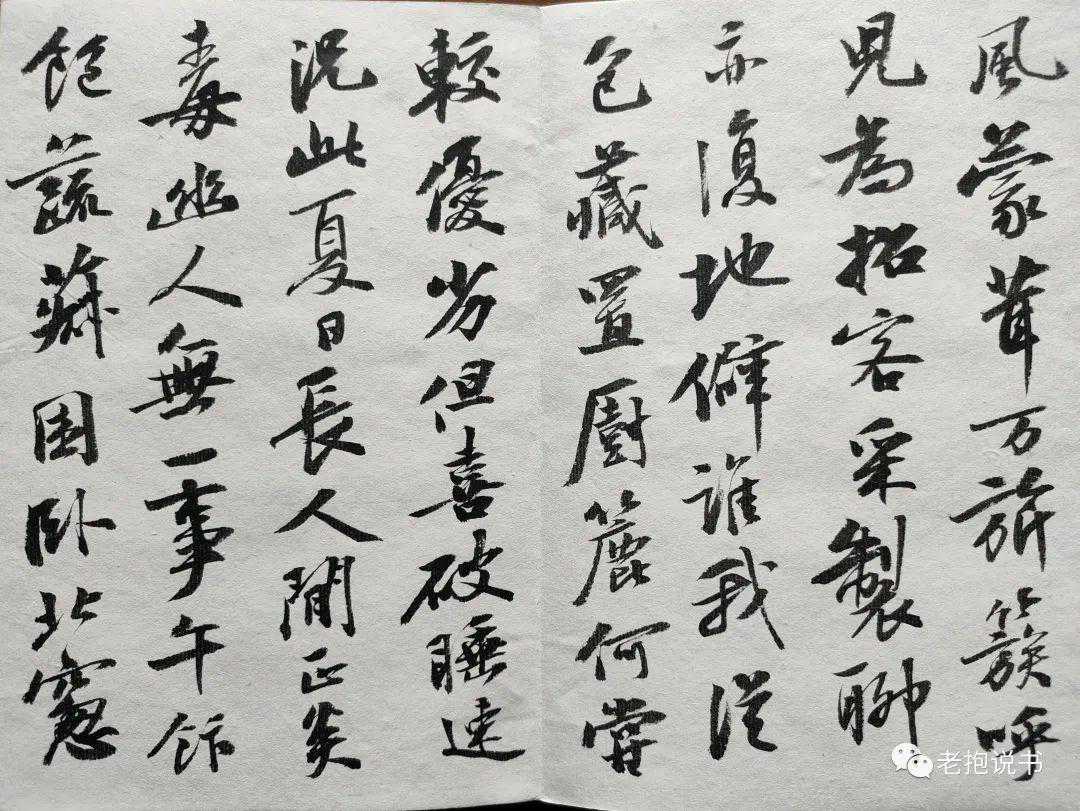 風蒙茸万旂簇呼
児為招客采製聊
亦復地僻誰我從
包藏置廚簏何嘗
較優劣但喜破睡速
況此夏日長人間正炎
毒幽人無一事午飰
飽蔬菽困卧北窻
老抱说书